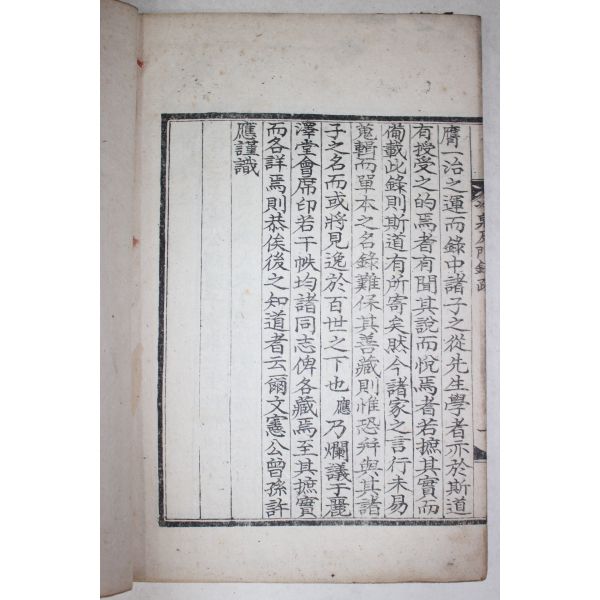 膺一治之運而錄中諸子之從先生學者亦於斯道
有授受之的焉者有聞其說而悅焉者若摭其實而
備載此錄則斯道有所寄矣然今諸家之言行未易
蒐輯而單本之名錄難保其善藏則惟恐并與其諸
子之名而或將見逸於百世之下也應乃爛議于麗
澤堂會席印若干帙均諸同志俾各藏焉至其摭實
而各詳焉則恭俟後之知道者云爾文憲公曾孫許
應謹識
泉及門錄跋
一